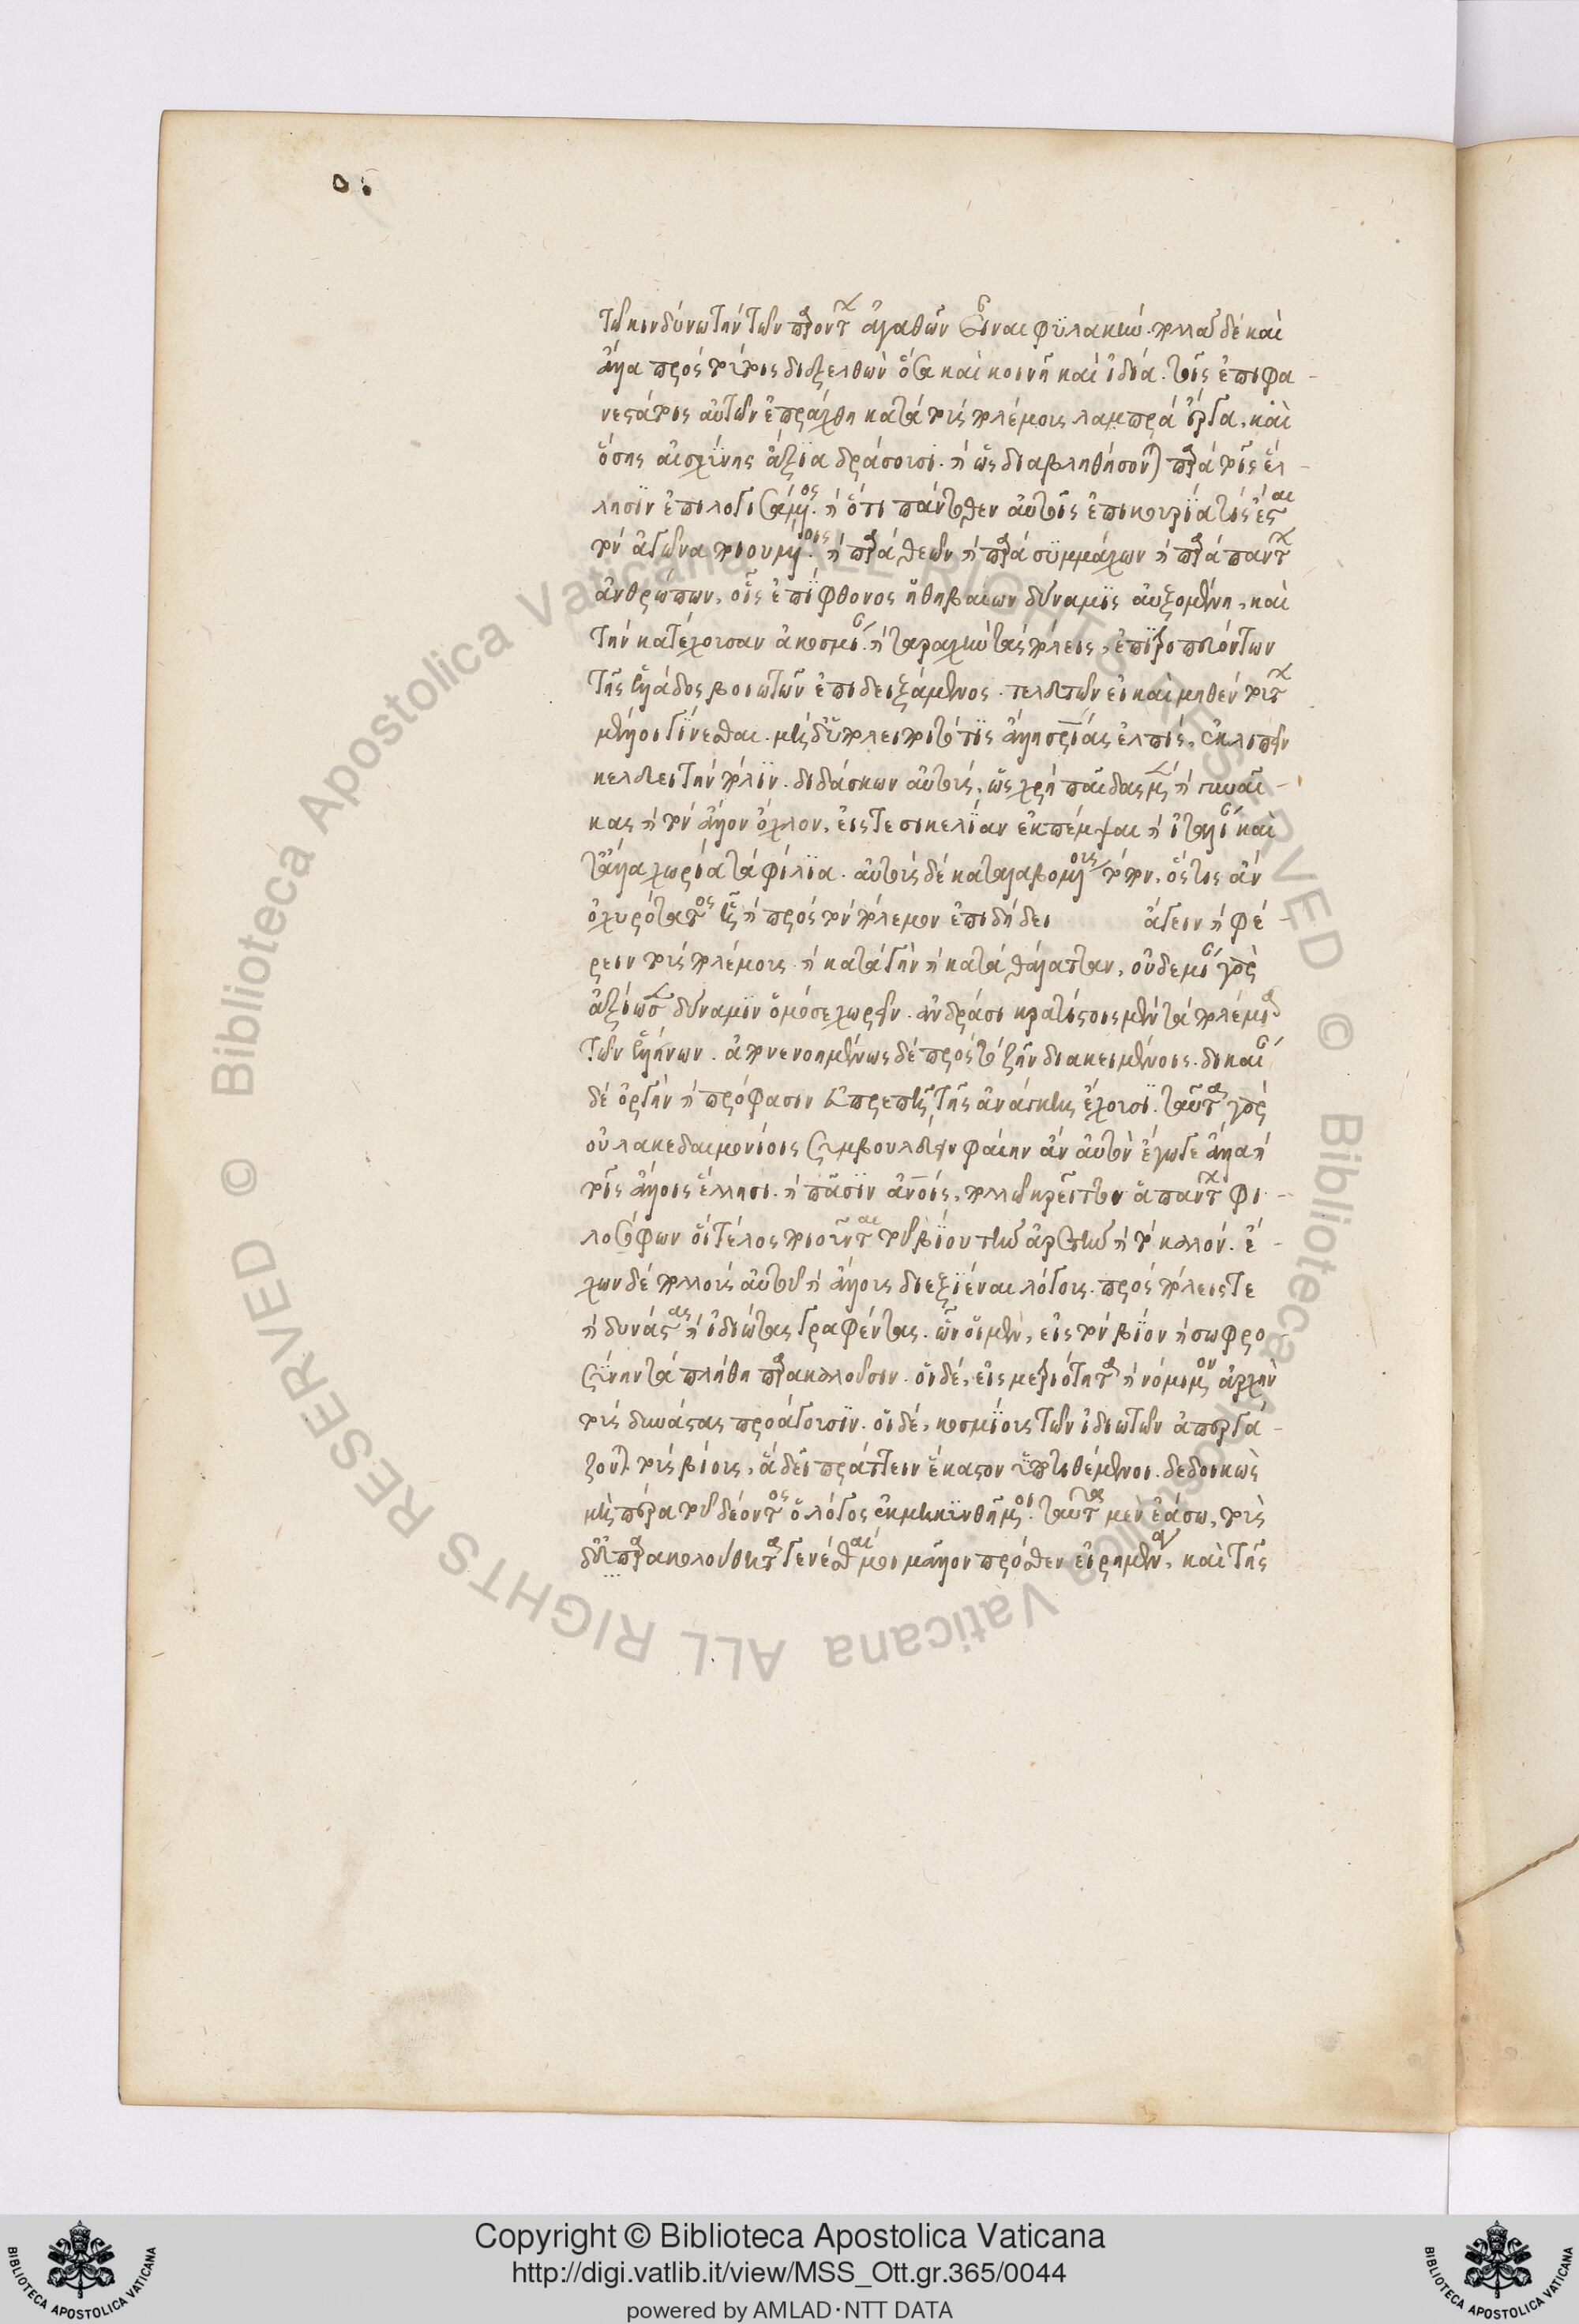 τῶ κινδύνω τὴν τῶν παρόντων ἀγαθῶν εἶναι φυλακήν. πολλὰ δὲ καὶ
ἄλλα πρὸς τούτοις διεξελθὼν ὅσα καὶ κοινῆ καὶ ἰδία τοῖς ἐπιφα-
νεστάτοις αὐτῶν ἐπράχθη κατὰ τοὺς πολέμους λαμπρὰ ἔργα, καὶ
ὅσης αἰσχύνης ἄξια δράσουσι. καὶ ὡς διαβληθήσονται παρὰ τοῖς ἕλ-
λησιν ἐπιλογισάμενος. καὶ ὅτι πάντοθεν αὐτοῖς ἐπικουρία τίς ἐστι
τὸν ἀγῶνα ποιουμένοις. καὶ παρὰ θεῶν καὶ παρὰ συμμάχων καὶ παρὰ πάντων
ἀνθρώπων, οἷς ἐπίφθονος ἡ θηβαίων δύναμις αὐξομένη, καὶ
τὴν κατέχουσαν ἀκοσμίαν καὶ ταραχὴν τὰς πόλεις, ἐπιτροπευόντων
τῆς ἑλλάδος βοιωτῶν ἐπιδειξάμενος. τελευτῶν εἰ καὶ μηθὲν τούτων
μέλλοι γίνεσθαι. μηδ' ἄλλη τις σωτηρίας ἐλπίς, ἐκλιπεῖν
κελεύει τὴν πόλιν. διδάσκων αὐτούς, ὡς χρὴ παῖδας μὲν καὶ γυναῖ-
κας καὶ τὸν ἄλλον ὄχλον, εἴς τε σικελίαν ἐκπέμψαι καὶ ἰταλίαν καὶ
τἄλλα χωρία τὰ φίλια. αὐτοὺς δὲ καταλαβομένους τόπον, ὅστις ἂν
ὀχυρώτατος ᾖ καὶ πρὸς τὸν πόλεμον ἐπιδήδει ἄγειν καὶ φέ-
ρειν τοὺς πολέμους καὶ κατὰ γὴν καὶ κατὰ θάλατταν, οὐδεμίαν γὰρ
ἀξιώσειν δύναμιν ὁμόσε χωρεῖν ἀνδράσι κρατίστοις μὲν τὰ πολέμια
τῶν ἑλλήνων. ἀπονενοημένως δὲ πρὸς τὸ ζῆν διακειμένοις. δικαίαν
δὲ ὀργὴν καὶ πρόφασιν εὐπρεπῆ τῆς ἀνάγκης ἔχουσι. ταῦτα γὰρ
οὐ λακεδαιμονίοις συμβουλεύειν φαίην ἂν αὐτὸν ἔγωγε ἀλλὰ καὶ
τοῖς ἄλλοις ἕλλησι. καὶ πᾶσιν ἀνοις, πολλῶ κρεῖττον ἁπάντων φι-
λοσόφων οἳ τέλος ποιοῦνται τοῦ βίου τὴν ἀρετὴν καὶ τὸ καλόν. ἔ-
χων δὲ πολλοὺς αὐτοῦ καὶ ἄλλους διεξιέναι λόγους πρὸς πόλεις τε
καὶ δυνάστας καὶ ἰδιώτας γραφέντας. ὧν οἱ μὲν, εἰς τὸν βίον καὶ σωφρο-
σύνην τὰ πλήθη παρακαλοῦσιν. οἱ δὲ, εἰς μετριότητα καὶ νόμιμον ἀρχὴν
τοὺς δυνάστας προάγουσιν. οἱ δὲ, κοσμίους τῶν ἰδιωτῶν ἀπεργά-
ζονται τοὺς βίους, ἃ δεῖ πράττειν ἕκαστον ὑποτιθέμενοι. δεδοικὼς
μὴ πέρα τοῦ δέοντος ὁ λόγος ἐκμηκυνθῆ μοι. ταῦτα μὲν ἐάσω, τοῦ
δ' εὐπαρακολούθητα γενέσθαι μοι μᾶλλον πρόσθεν εἰρημένα, καὶ τῆς
Copyright © Biblioteca Apostolica Vaticana
http://digi.vatlib.it/view/MSS_Ott.gr.365/0044
powered by AMLAD·NTT DATA